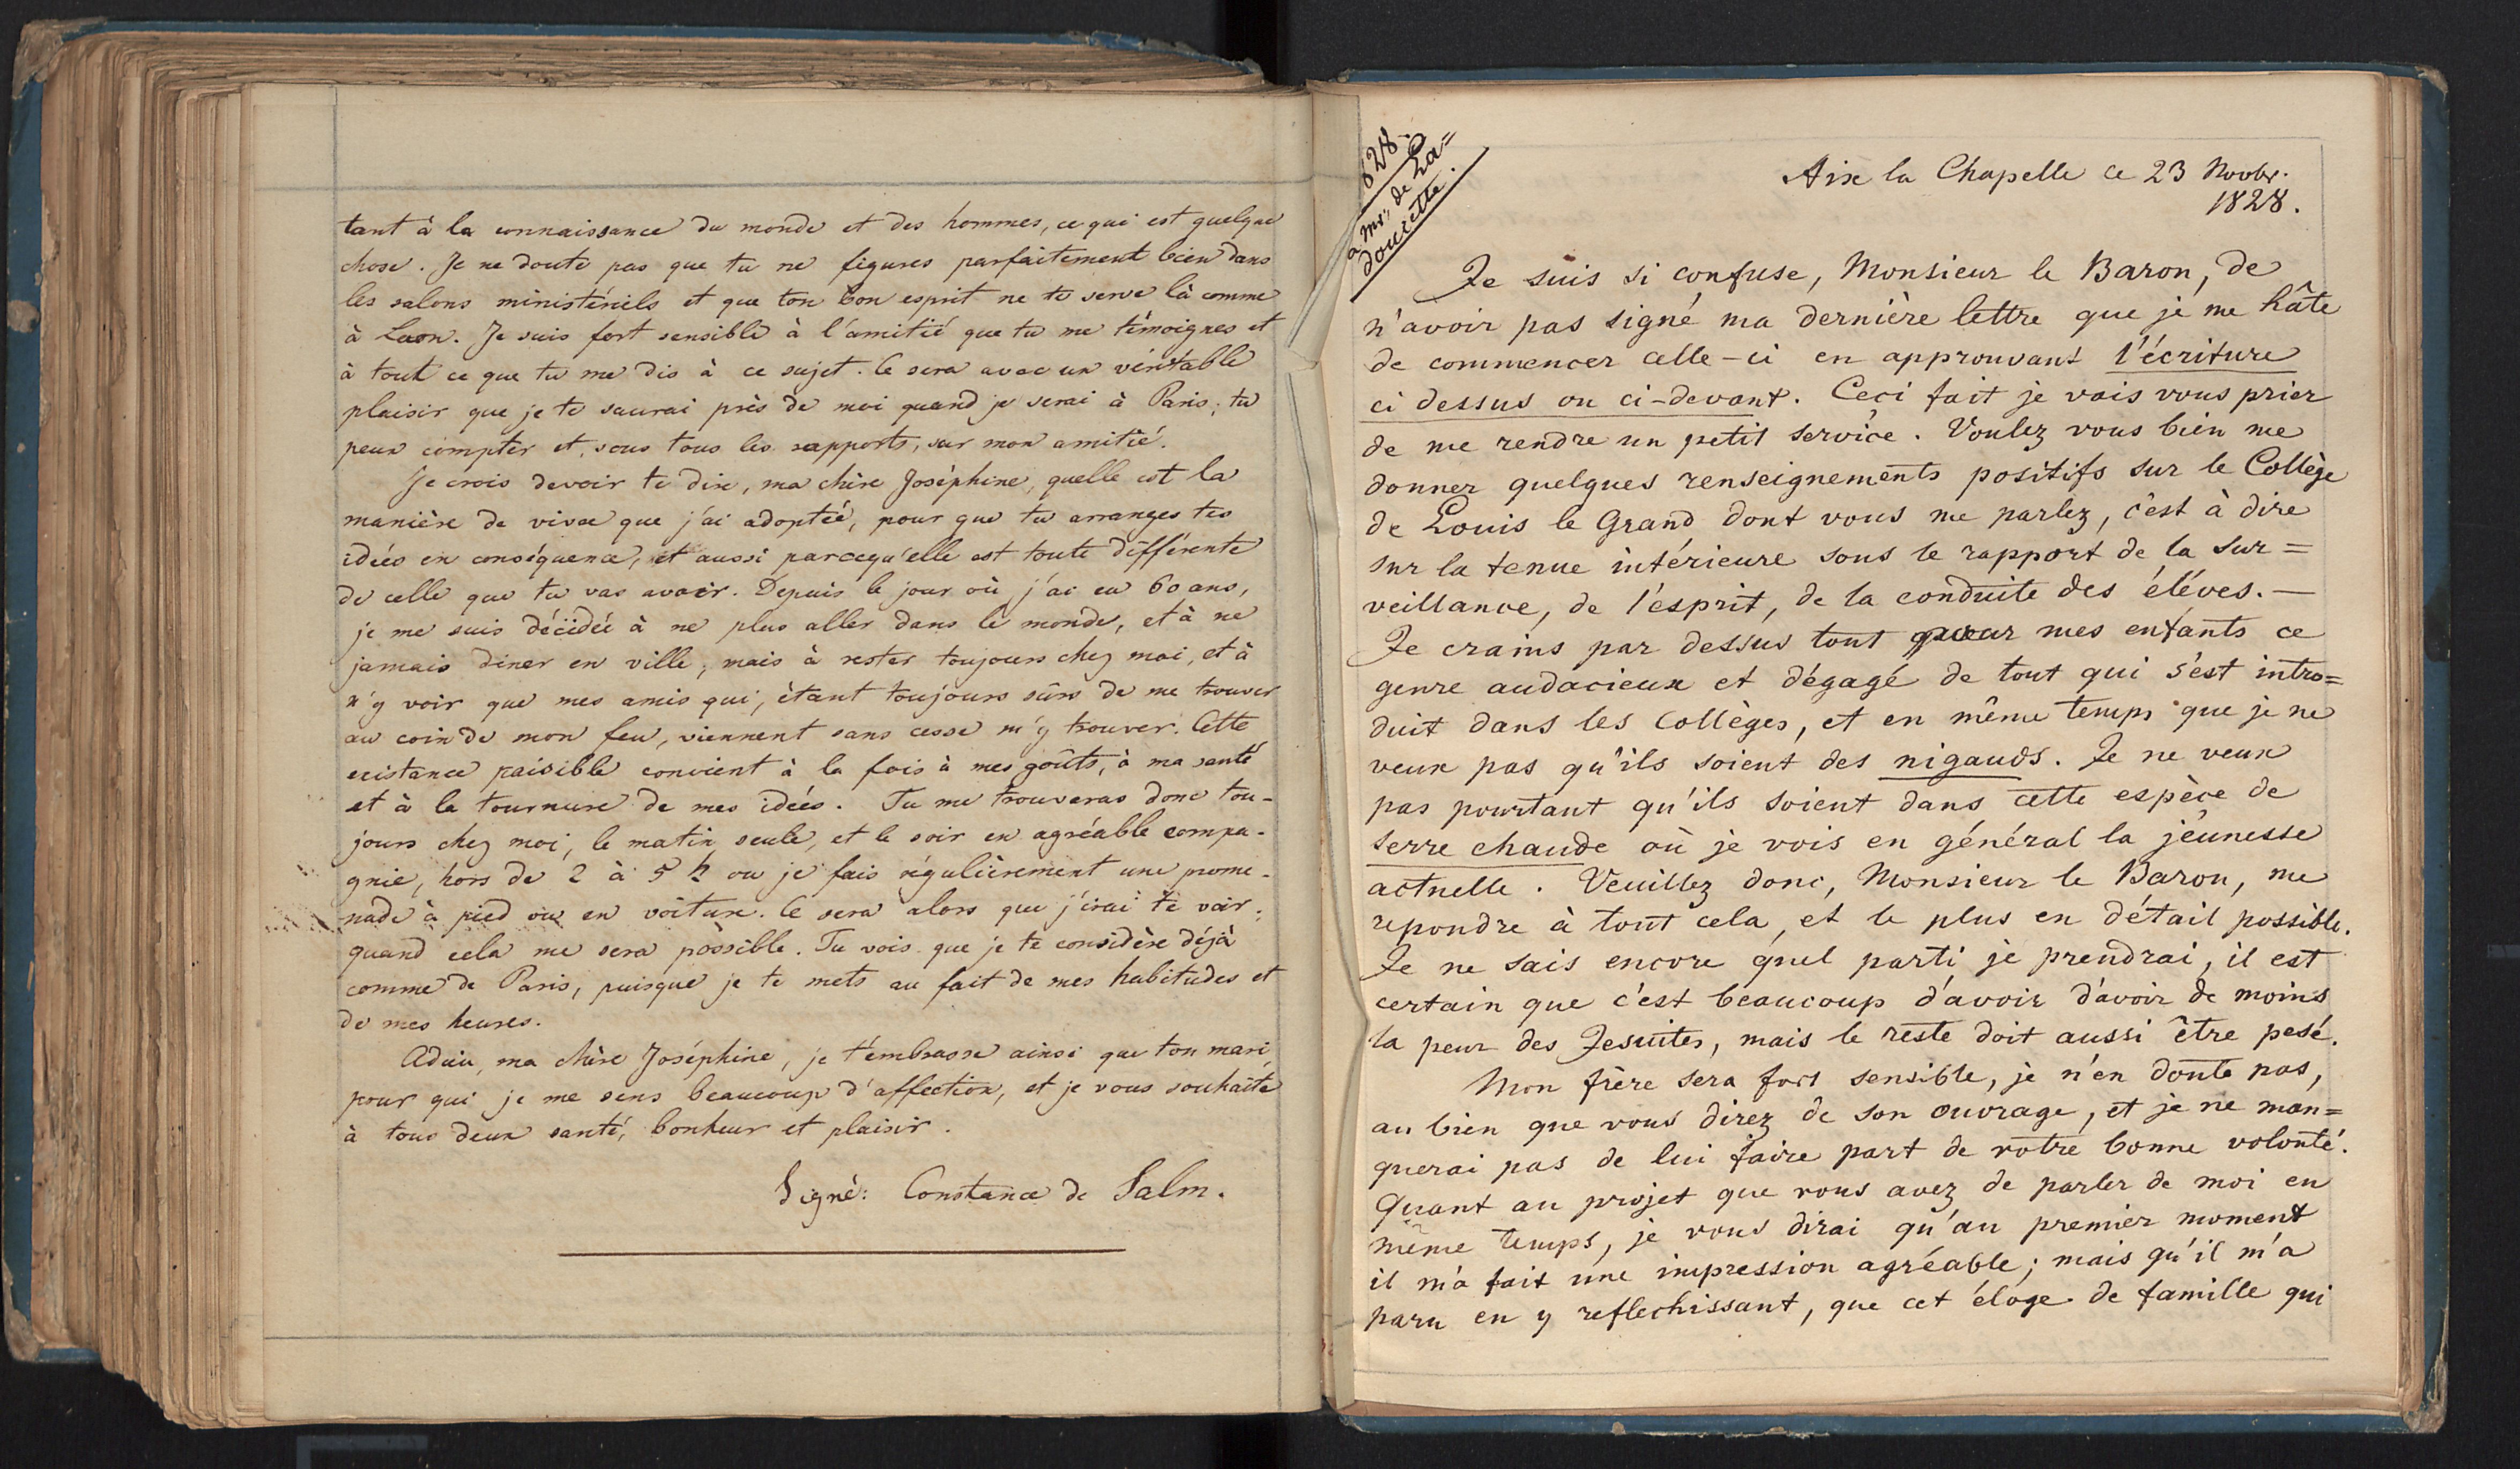 tant à la connaissance du monde et des hommes, ce qui est quelque
chose. Je ne doute pas que tu ne figures parfaitement bien dans
les salons ministériels et que ton bon esprit ne te serve là comme
à Laon. Je suis fort sensible à l'amitié que tu me témoignes et
à tout ce que tu me dis à ce sujet. Ce sera avec un véritable
plaisir que je te saurai près de moi quand je serai à Paris; tu
peux compter et, sous tous les rapports, sur mon amitié.
Je crois devoir te dire, ma chère Joséphine, quelle est la
manière de vivre que j'ai adoptée, pour que tu arranges tes
idées en conséquence, et aussi parcequ'elle est toute différente
de celle que tu vas avoir. Depuis le jour où j'ai eu 60 ans,
je me suis décidée à ne plus aller dans le monde, et à ne
jamais diner en ville, mais à rester toujours chez moi, et à
n'y voir que mes amis qui, étant toujours sûrs de me trouver
au coin de mon feu, viennent sans cesse m'y trouver. Cette
existance paisible convient à la fois à mes goûts, à ma santé
et à la tournure de mes idées. Tu me trouveras donc tou-
jours chez moi, le matin seule, et le soir en agréable compa-
gnie, hors de 2 à 5 h ou je fais régulièrement une prome-
nade à pied ou en voiture. Ce sera alors que j'irai te voir,
quand cela me sera possible. Tu vois que je te considère déjà
comme de Paris, puisque je te mets au fait de mes habitudes et
de mes heures.
Adieu, ma chère Joséphine, je t'embrasse ainsi que ton mari
pour qui je me sens beaucoup d'affection, et je vous souhaite
à tous deux santé, bonheur et plaisir.
Signé: Constance de Salm.
1828.
a Mr. de La=
doucette.
Aix la Chapelle ce 23 Novbr.
1828.
Je suis si confuse, Monsieur le Baron, de
n'avoir pas signé ma dernière lettre que je me hâte
de commencer celle-ci en approuvant l'écriture
ci dessus ou ci-devant. Ceci fait je vais vous prier
de me rendre un petit service. Voulez vous bien me
donner quelques renseignements positifs sur le Collège
de Louis le Grand dont vous me parlez, c'est à dire
sur la tenue intérieure sous le rapport de la sur=
veillance, de l'esprit, de la conduite des éléves. —
Je crains par dessus tout pour mes enfants ce
genre audacieux et dégagé de tout qui s'est intro=
duit dans les Collèges, et en même temps que je ne
veux pas qu'ils soient des nigauds. Je ne veux
pas pourtant qu'ils soient dans cette espèce de
serre chaude où je vois en général la jeunesse
actuelle. Veuillez donc, Monsieur le Baron, me
repondre à tout cela, et le plus en détail possible.
Je ne sais encore quel parti je prendrai, il est
certain que c'est beaucoup d'avoir d'avoir de moins
la peur des Jesuites, mais le reste doit aussi être pesé.
Mon frère sera fort sensible, je n'en doute pas,
au bien que vous direz de son ouvrage, et je ne man=
querai pas de lui faire part de votre bonne volonté.
Quant au projet que vous avez de parler de moi en
même temps, je vous dirai qu'au premier moment
il m'a fait une impression agréable; mais qu'il m'a
paru en y reflechissant, que cet éloge de famille qui